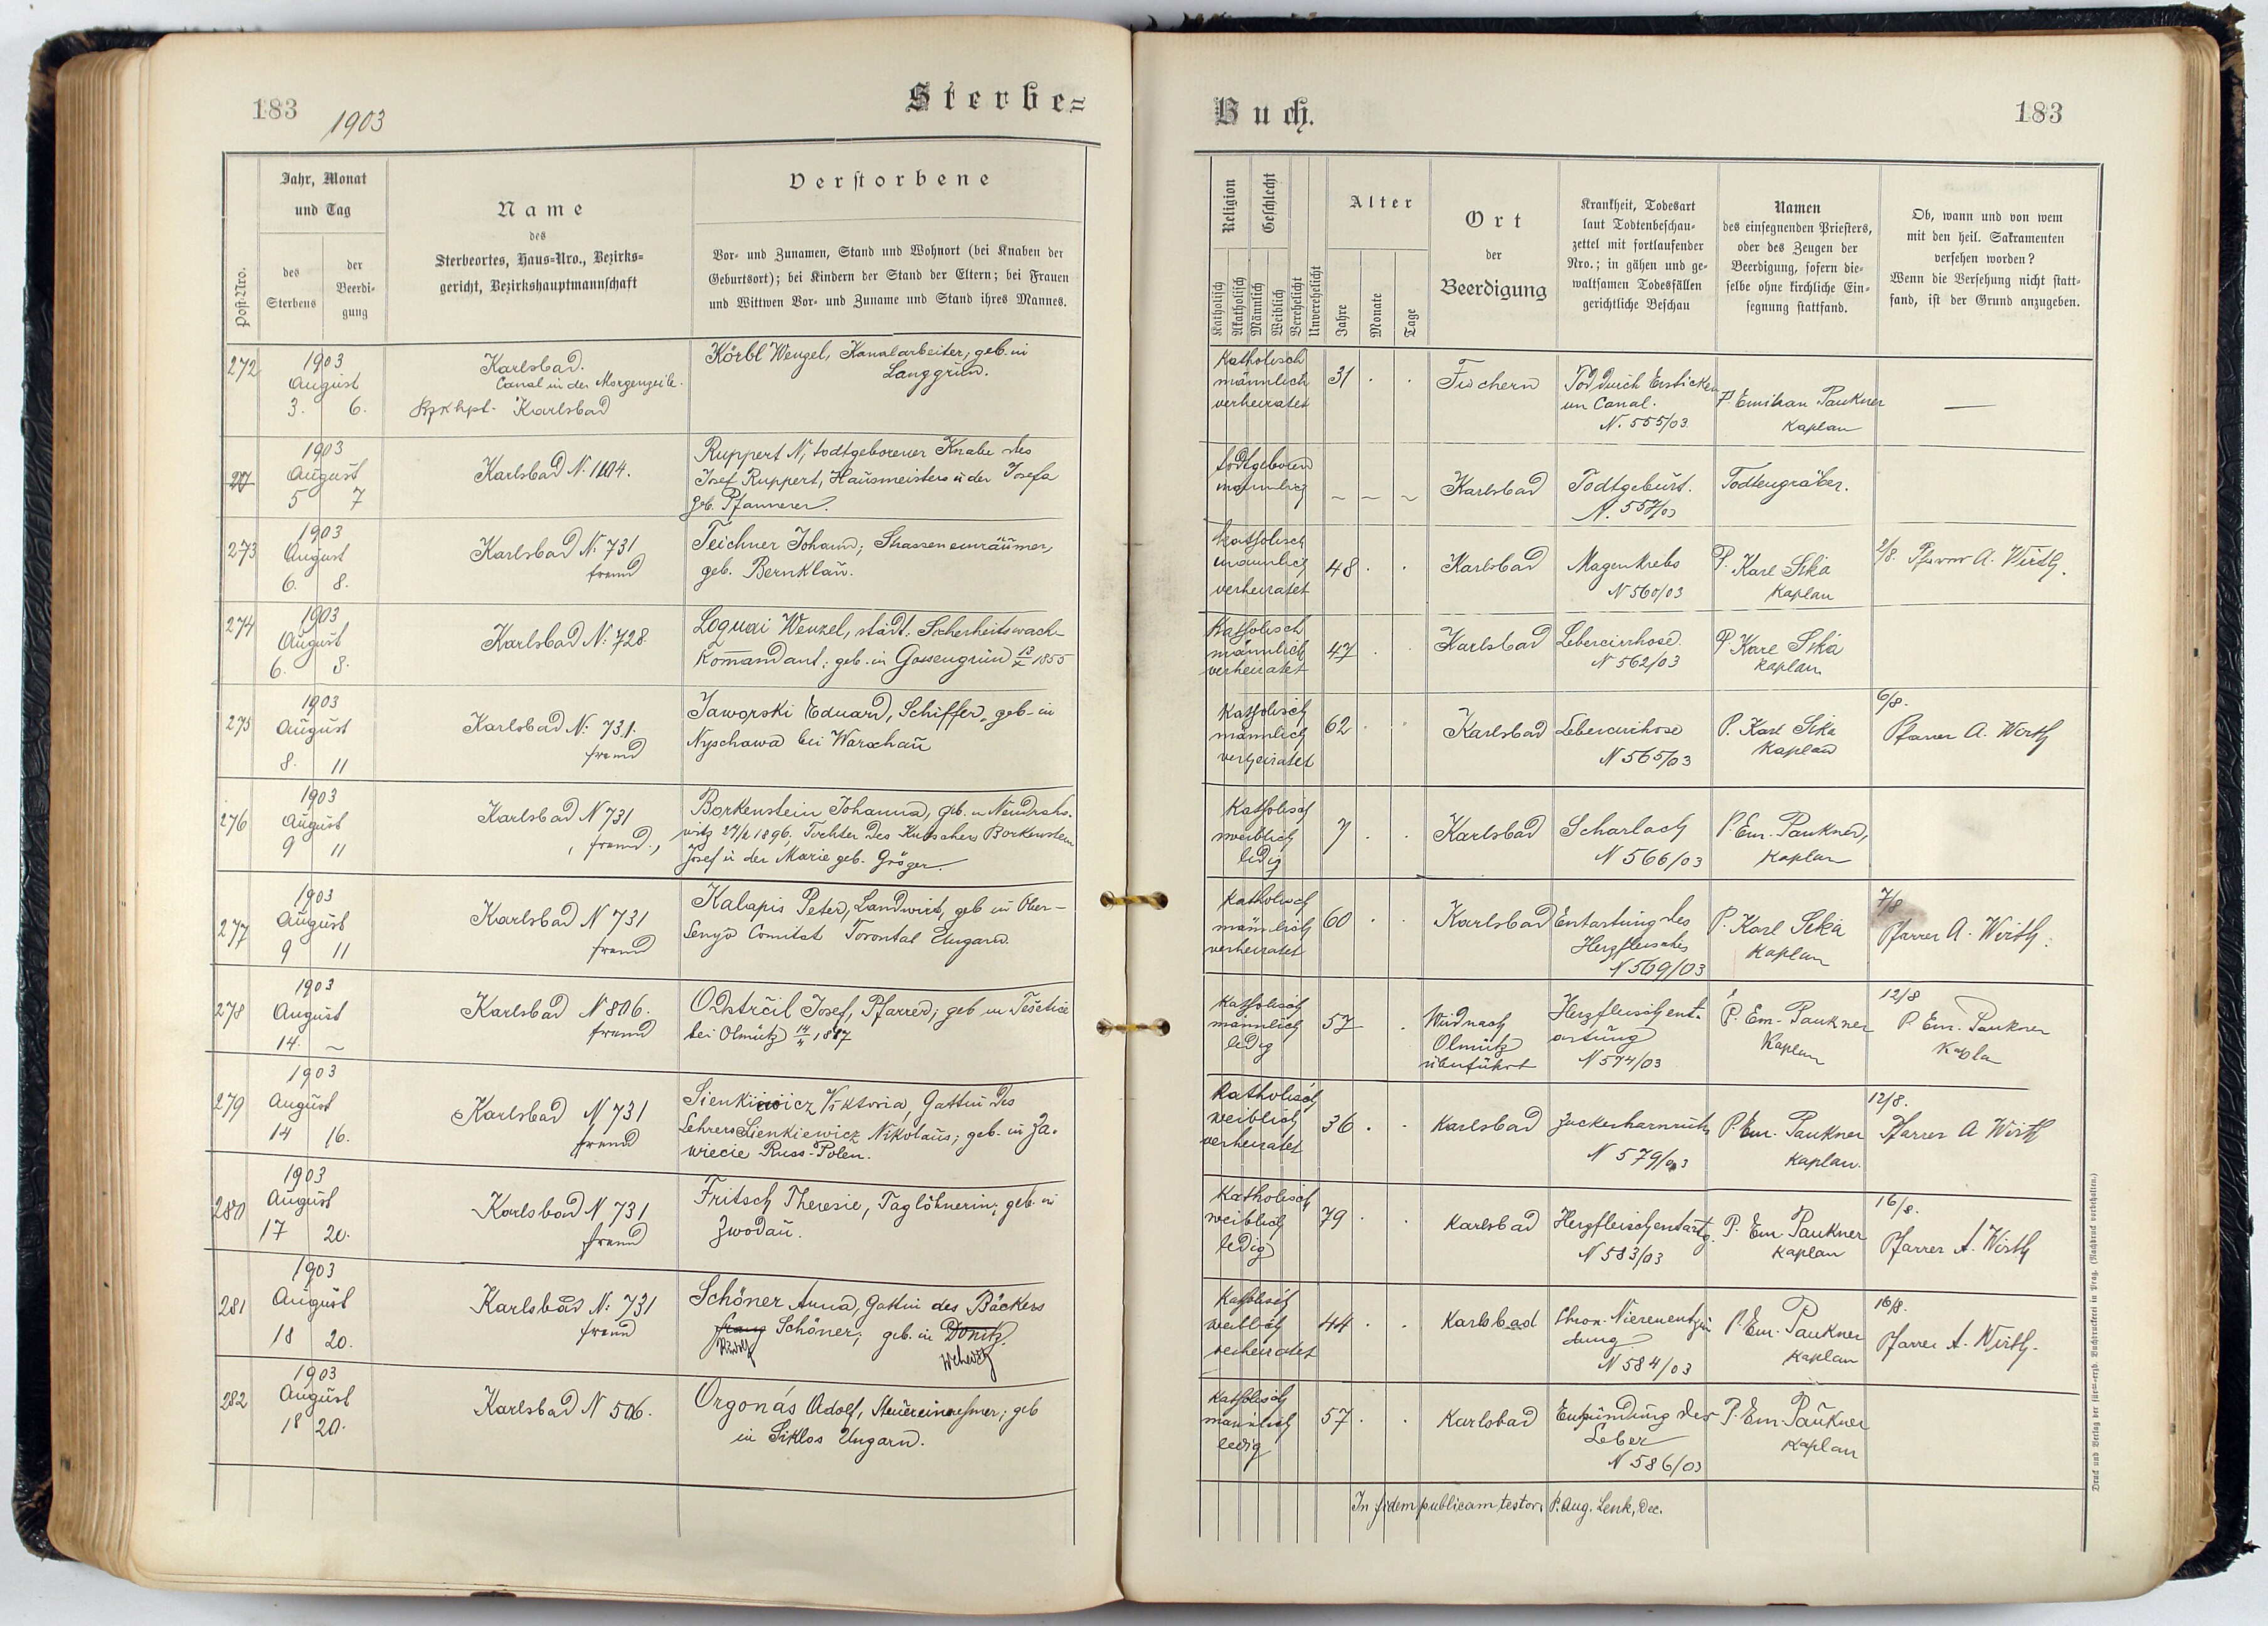 183
1903
Sterbe=
Jahr, Monat
und Tag
Post-Nro.
des
Sterbens
der
Beerdi-
gung
Name
des
Sterbeortes, Haus-Nro., Bezirks-
gericht, Bezirkshauptmannschaft
Verstorbene
Vor- und Zunamen, Stand und Wohnort (bei Knaben der
Geburtsort); bei Kindern der Stand der Eltern; bei Frauen
und Wittwen Vor- und Zuname und Stand ihres Mannes.
272
1903
August
3. 6.
Karlsbad.
Canal in der Morgenzeile.
Karlsbad
Körbl Wenzel, Kanalarbeiter, geb. in
Langgrün.
1903
August
5 7
Karlsbad N. 1104.
Ruppert N, todtgeborener Knabe des
Josef Ruppert, Hausmeisters u der Josefa
geb. Pfannerer.
273
1903
August
6. 8.
Karlsbad N: 731
fremd
Teichner Johann; Strasseneinräumer,
geb. Bernklau.
274
1903
August
6. 8.
Karlsbad N: 728.
Loquai Wenzel, städt. Sicherheitswach-
kommandant; geb. in Gossengrün 13/X 1855
275
1903
August
8. 11
Karlsbad N: 731.
fremd
Jaworski Eduard, Schiffer, geb. in
Nyschawa bei Warschau
276
1903
August
9 11
Karlsbad N 731
fremd.
Borkenstein Johanna, geb. in
1896. Tochter des Kutschers Borkenstein
Josef u der Marie geb. Gröger.
277
1903
August
9 11
Karlsbad N 731
fremd
Kalapis Peter, Landwirt, geb in Ober-
Comitat Torontal Ungarn.
278
1903
August
14. ~
Karlsbad N 806.
fremd
Odstrčil Josef, Pfarrer, geb in Tešetice
bei Olmütz
279
1903
August
14 16.
Karlsbad N 731
fremd
Sienkiewicz Viktoria, Gattin des
Lehrers Sienkiewicz Nikolaus; geb. in Za-
wiecie Russ-Polen.
280
1903
August
17 20.
Karlsbad N 731
fremd
Fritsch Theresie, Taglöhnerin; geb. in
Zwodau.
281
1903
August
18 20.
Karlsbad N: 731
fremd
Schöner Anna, Gattin des Bäckers
Franz Schöner; geb. in Donitz.
Wehevitz
282
1903
August
18 20.
Karlsbad N 506.
Orgonás Adolf, Steuereinnehmer; geb
in Siklos Ungarn.
Buch.
183
Religion
Geschlecht
Katholisch
Akatholisch
Männlich
Weiblich
Verehelicht
Unverehelicht
Alter
Jahre
Monate
Tage
Ort
der
Beerdigung
Krankheit, Todesart
laut Todtenbeschau-
zettel mit fortlaufender
Nro.; in gähen und ge-
waltsamen Todesfällen
gerichtliche Beschau
Namen
des einsegnenden Priesters,
oder des Zeugen der
Beerdigung, sofern die-
selbe ohne kirchliche Ein-
segnung stattfand.
Ob, wann und von wem
mit den heil. Sakramenten
versehen worden?
Wenn die Versehung nicht statt-
fand, ist der Grund anzugeben.
Katholisch
männlich
verheiratet
31
Fischern
Tod durch Ersticken
im Canal.
N. 555/03
P. Emilian Paukner
Kaplan
—
todtgeboren
männlich
~ ~ ~
Karlsbad
Todtgeburt.
N. 557/03
Todtengräber.
Katholisch
männlich
verheiratet
48
Karlsbad
Magenkrebs
N 560/03
P. Karl Sika
Kaplan
2/8. Pfarrer A. Wirth.
Katholisch
männlich
verheiratet
47
Karlsbad
Lebercirrhose
N 562/03
P. Karl Sika
Kaplan
Katholisch
männlich
verheiratet
62
Karlsbad
Lebercirrhose
N 565/03
P. Karl Sika
Kaplan
6/8.
Pfarrer A. Wirth
Katholisch
weiblich
ledig
7
Karlsbad
Scharlach
N 566/03
P. Em. Paukner,
Kaplan
Katholisch
männlich
verheiratet
60
Karlsbad
Entartung des
Herzfleisches
N 569/03
P. Karl Sika
Kaplan
Pfarrer A. Wirth.
Katholisch
männlich
ledig
57
Wird nach
Olmütz
überführt
Herzfleischent-
artung
N 574/03
P. Em. Paukner
Kaplan
12/8
P. Em. Paukner
Kapla
Katholisch
weiblich
verheiratet
36
Karlsbad
Zuckerharnruhr
N 579/03
P. Em. Paukner
Kaplan.
12/8.
Pfarrer A Wirth
Katholisch
weiblich
ledig
79
Karlsbad
Herzfleischentartg.
N 583/03
P. Em Paukner
Kaplan
16/8.
Pfarrer A. Wirth
Katholisch
weiblich
verheiratet
44
Karlsbad
Chron. Nierenentzün
dung
N 584/03
P. Em. Paukner
Kaplan
16/8.
Pfarrer A. Wirth.
Katholisch
männlich
ledig
57
Karlsbad
Entzündung der
Leber
N 586/03
P. Em. Paukner
Kaplan
In fidem publicam testor: P. Aug. Lenk, Dec.
Druck und Verlag der fürst-erzb. Buchdruckerei in Prag. (Nachdruck vorbehalten.)